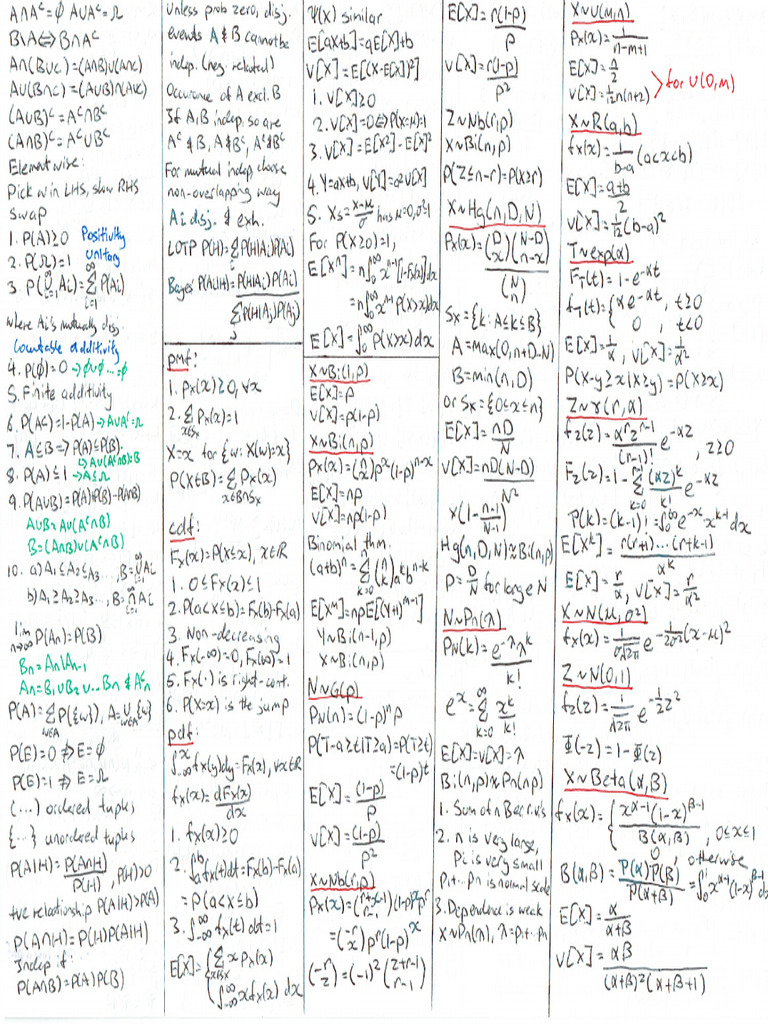 A∩Aᶜ=∅ A∪Aᶜ=Ω
B\A⇔B∩Aᶜ
A∩(B∪C)=(A∩B)∪(A∩C)
A∪(B∩C)=(A∪B)∩(A∪C)
(A∪B)ᶜ=Aᶜ∩Bᶜ
(A∩B)ᶜ=Aᶜ∪Bᶜ
Elementwise:
Pick w in LHS, show RHS
Swap
1. P(A)≥0 Positivity
2. P(Ω)=1 unitary
3. P(∪_{i=1}^∞ Ai)=Σ_{i=1}^∞ P(Ai)
where Ai's mutually disj.
Countable additivity
4. P(∅)=0 →∅∪∅...=∅
5. Finite additivity
6. P(Aᶜ)=1-P(A) →A∪Aᶜ=Ω
7. A⊆B⇒P(A)≤P(B).
→A∪(Aᶜ∩B)=B
8. P(A)≤1 →A⊆Ω
9. P(A∪B)=P(A)+P(B)-P(A∩B)
A∪B=A∪(Aᶜ∩B)
B=(A∩B)∪(Aᶜ∩B)
10. a) A₁⊆A₂⊆A₃..., B=∪_{i=1}^∞ Ai
b) A₁⊇A₂⊇A₃..., B=∩_{i=1}^∞ Ai
lim_{n→∞} P(An)=P(B)
Bn=An\An-1
An=B₁∪B₂∪...Bn & Aᶜn
P(A)=Σ_{w∈A} P({w}), A=∪_{w∈A}{w}
P(E)=0 ⇏ E=∅
P(E)=1 ⇏ E=Ω
(...) ordered tuples
{...} unordered tuples
P(A|H)=P(A∩H)/P(H), P(H)>0
+ve relationship P(A|H)>P(A)
P(A∩H)=P(H)P(A|H)
Indep if:
P(A∩B)=P(A)P(B)
Unless prob zero, disj.
events A & B cannot be
indep. (neg. related)
Occurence of A excl. B
If A,B indep. so are
Aᶜ & B, A&Bᶜ, Aᶜ&Bᶜ
For mutual indep choose
non-overlapping way
Ai disj. & exh.
LOTP P(H)=Σ_i P(H|Ai)P(Ai)
Bayes P(Ai|H)=P(H|Ai)P(Ai)/Σ_j P(H|Aj)P(Aj)
pmf:
1. px(x)≥0, ∀x
2. Σ_{x∈Sx} Px(x)=1
X=x for {w: X(w)=x}
P(X∈B)=Σ_{x∈B∩Sx} Px(x)
cdf:
Fx(x)=P(X≤x), x∈R
1. 0≤Fx(x)≤1
2. P(a<X≤b)=Fx(b)-Fx(a)
3. Non-decreasing
4. Fx(-∞)=0, Fx(∞)=1
5. Fx(·) is right-cont.
6. P(X=x) is the jump
pdf:
∫_{-∞}^x fx(y)dy=Fx(x), ∀x∈R
fx(x)=dFx(x)/dx
1. fx(x)≥0
2. ∫_a^b fx(t)dt=Fx(b)-Fx(a)
=P(a<X≤b)
3. ∫_{-∞}^∞ fx(t)dt=1
E[X]={Σ_{x∈Sx} x Px(x)
∫_{-∞}^∞ xfx(x) dx
Ψ(X) similar
E[aX+b]=aE[X]+b
V[X]=E[(X-E[X])²]
1. V[X]≥0
2. V[X]=0⇔P(X=μ)=1
3. V[X]=E[X²]-E[X]²
4. Y=aX+b, V[Y]=a²V[X]
5. Xs=(X-μ)/σ has μ=0, σ²=1
For P(X≥0)=1,
E[Xⁿ]=n∫_0^∞ xⁿ⁻¹[1-Fx(x)]dx
=n∫_0^∞ xⁿ⁻¹ P(X>x)dx
E[X]=∫_0^∞ P(X>x)dx
X~Bi(1,p)
E[X]=p
V[X]=p(1-p)
X~Bi(n,p)
Px(x)=(n x)pˣ(1-p)ⁿ⁻ˣ
E[X]=np
V[X]=np(1-p)
Binomial thm.
(a+b)ⁿ=Σ_{k=0}^n (n k)aᵏbⁿ⁻ᵏ
E[Xᵐ]=npE[(Y+1)ᵐ⁻¹]
Y~Bi(n-1,p)
X~Bi(n,p)
N~G(p)
PN(n)=(1-p)ⁿp
P(T-a≥t|T≥a)=P(T≥t)
=(1-p)ᵗ
E[X]=(1-p)/p
V[X]=(1-p)/p²
X~Nb(r,p)
Px(x)=(r+x-1 r-1)(1-p)ˣpʳ
=(-r x)pʳ(1-p)ˣ
(-r z)=(-1)ᶻ(z+r-1 r-1)
E[X]=r(1-p)/p
V[X]=r(1-p)/p²
Z~Nb(r,p)
X~Bi(n,p)
P(Z≤n-r)=P(X≥r)
X~Hg(n,D,N)
Px(x)=(D x)(N-D n-x)/(N n)
Sx={k: A≤k≤B}
A=max(0,n+D-N)
B=min(n,D)
or Sx={0≤x≤n}
E[X]=nD/N
V[X]=nD(N-D)/N²
×(1-(n-1)/(N-1))
Hg(n,D,N)≈Bi(n,p)
p=D/N for large N
N~Pn(λ)
PN(k)=e^{-λ}λᵏ/k!
eˣ=Σ_{k=0}^∞ xᵏ/k!
E[X]=V[X]=λ
Bi(n,p)≈Pn(np)
1. Sum of n Ber r.v's
2. n is very large,
Pi is very small
P1+...Pn is normal scale
3. Dependence is weak
X~Pn(λ), λ=p1+...pn
X~U(m,n)
Px(x)=1/(n-m+1)
E[X]=n/2
V[X]=1/12 n(n+2) > for U(0,n)
X~R(a,b)
fx(x)=1/(b-a) (a<x<b)
E[X]=(a+b)/2
V[X]=1/12(b-a)²
T~exp(α)
FT(t)=1-e^{-αt}
fT(t)={αe^{-αt}, t≥0
0, t<0
E[X]=1/α, V[X]=1/α²
P(X-y≥x|X≥y)=P(X≥x)
Z~γ(r,α)
fz(z)=αʳzʳ⁻¹/(r-1)! e^{-αz}, z≥0
Fz(z)=1-Σ_{k=0}^{r-1} (αz)ᵏ/k! e^{-αz}
Γ(k)=(k-1)!=∫_0^∞ e^{-x}x^{k-1}dx
E[Xᵏ]=r(r+1)...(r+k-1)/αᵏ
E[X]=r/α, V[X]=r/α²
X~N(μ,σ²)
fx(x)=1/(σ√2π) e^{-1/(2σ²)(x-μ)²}
Z~N(0,1)
fz(z)=1/√2π e^{-½z²}
Φ(-z)=1-Φ(z)
X~Beta(α,β)
fx(x)={x^{α-1}(1-x)^{β-1}/B(α,β), 0≤x≤1
0, otherwise
B(α,β)=Γ(α)Γ(β)/Γ(α+β)=∫_0^1 x^{α-1}(1-x)^{β-1}dx
E[X]=α/(α+β)
V[X]=αβ/((α+β)²(α+β+1))